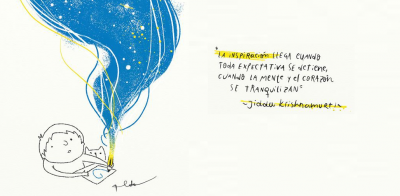 "LA INSPIRACIÓN LLEGA CUANDO
TODA EXPECTATIVA SE DETIENE,
CUANDO LA MENTE Y EL CORAZÓN
SE TRANQUILIZAN"
~Jiddu Krishnamurti